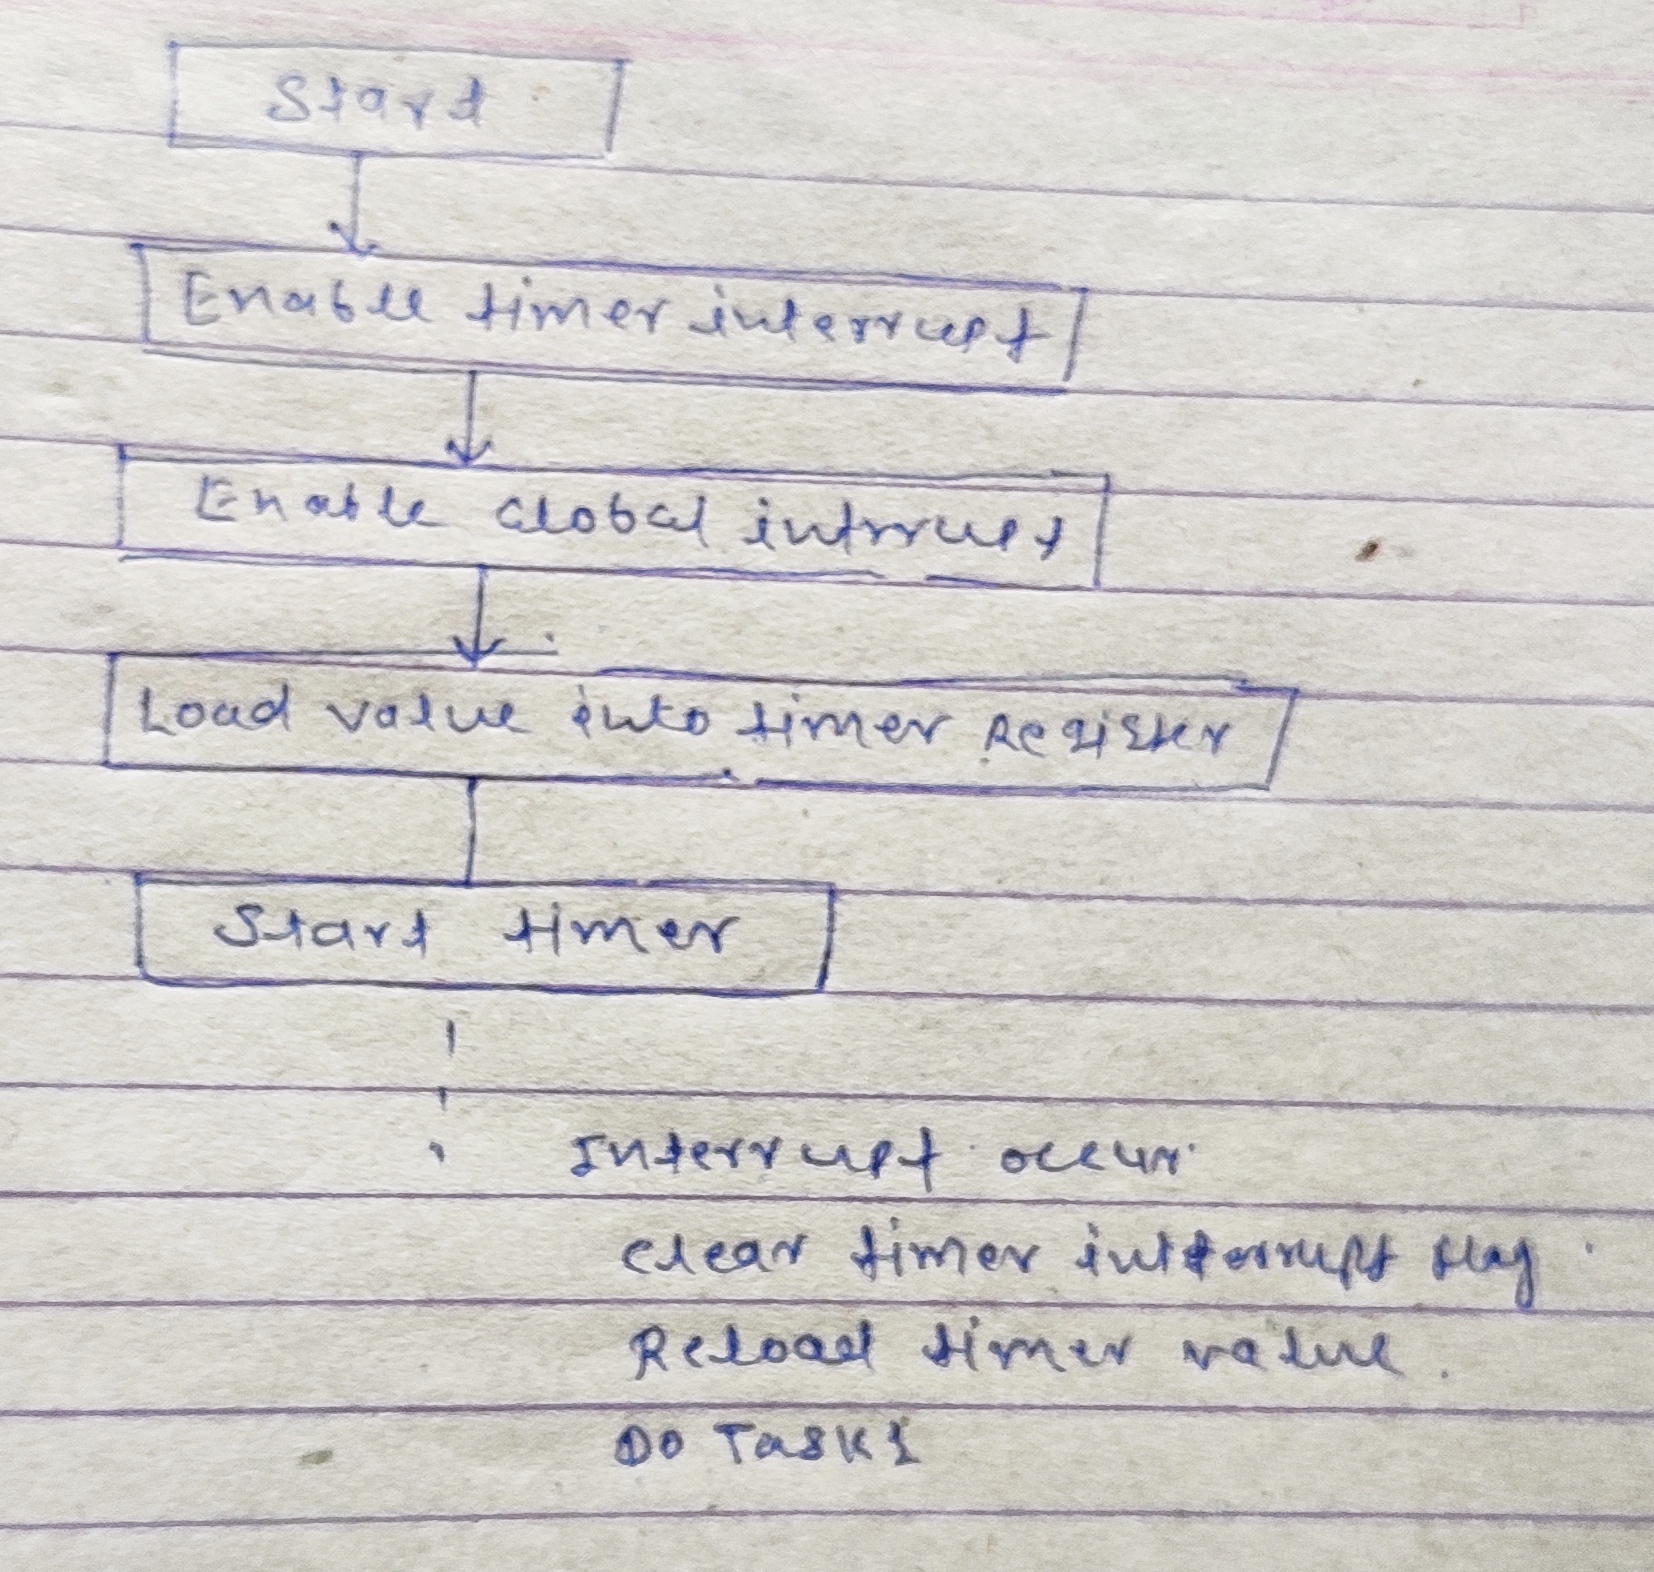 Start
Enable timer interrupt
Enable Global intrrupt
Load value into timer Register
Start timer
Interrupt occur
clear timer interrupt flag
Reload timer value.
DO TASK1